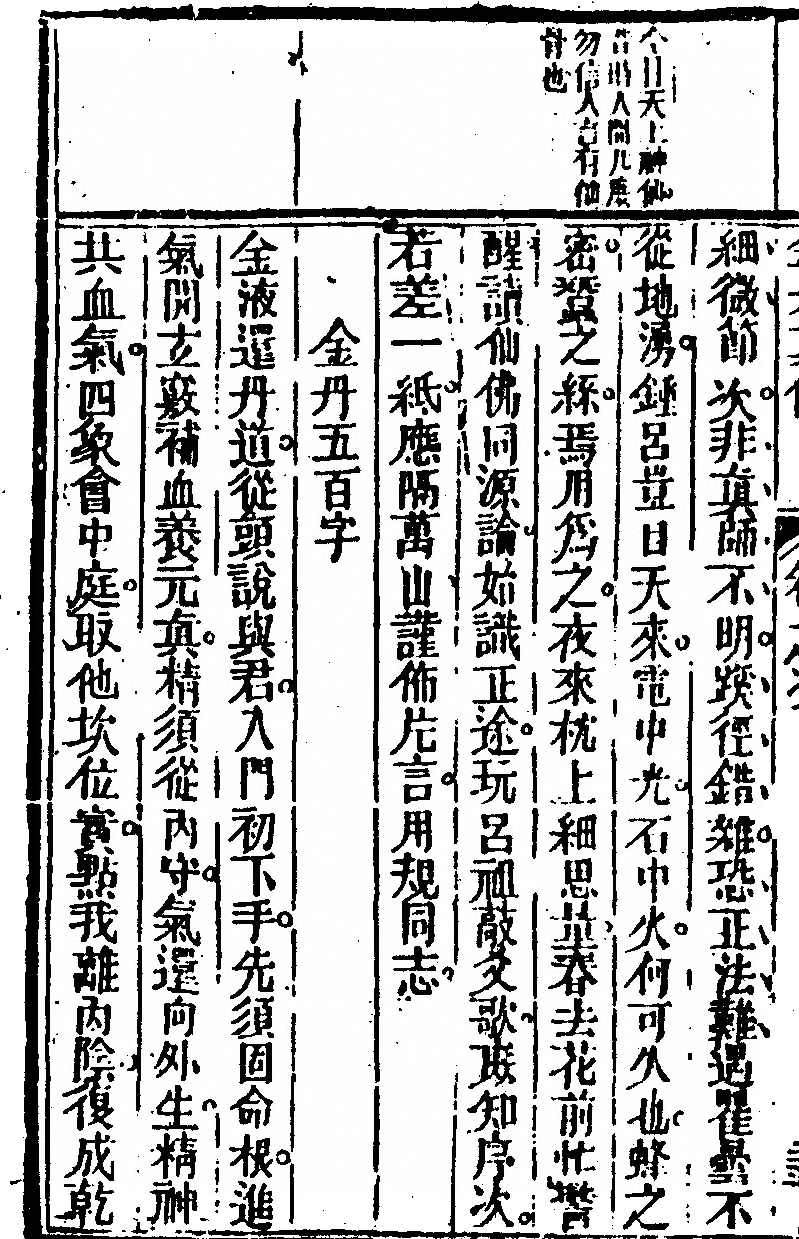 今日天上神仙
皆爲人間凡
勿信人言有仙
骨也
細微節次非真師不明蹊徑錯雜恐正法難遇瞿曇不
從地湧鍾呂豈曰天來電中光石中火何可久也蜂之
密蠶之絲焉用爲之夜來枕上細思量春去花前忙警
醒請仙佛同源論始識正途玩呂祖敲爻歌璇知序次
若差一紙應隔萬山謹佈片言用規同志
金丹五百字
金液還丹道從頭說與君入門初下手先須固命根進
氣開玄竅補血養元真精須從內守氣還向外生精神
共血氣四象會中庭取他坎位實點我離內陰復成乾